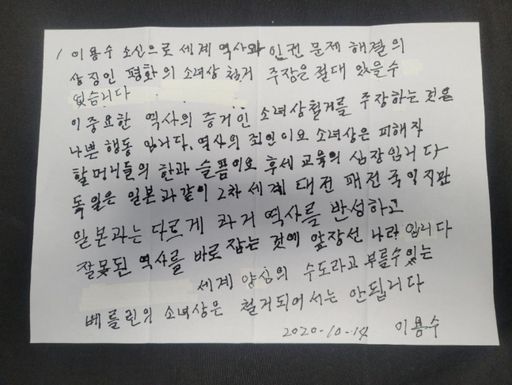 이용수 소신으로 세계 역사와 인권 문제 해결의
상징인 평화의 소녀상 철거 주장은 절대 있을수
없습니다
이 중요한 역사의 증거인 소녀상철거를 주장하는 것은
나쁜 행동 입니다. 역사의 죄인이요 소녀상은 피해자
할머니들의 한과 슬픔이요 후세 교육의 심장입니다
독일은 일본과같이 2차 세계 대전 패전 국 이지만
일본과는 다르게 과거 역사를 반성하고
잘못된 역사를 바로 잡는 것에 앞장선 나라 입니다
세계 양심의 수도라고 부를수 있는
베를린의 소녀상은 철거되어서는 안됩니다
2020-10-14 이용수